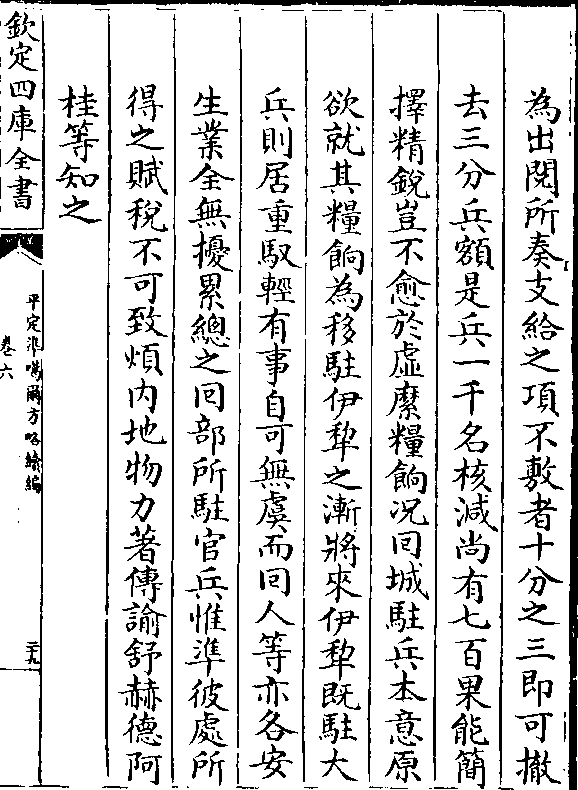 為出閱所奏支給之項不敷者十分之三即可撤
去三分兵額是兵一千名核減尚有七百果能簡
擇精銳豈不愈於虛縻糧餉况回城駐兵本意原
欲就其糧餉為移駐伊犂之漸將來伊犂既駐大
兵則居重馭輕有事自可無虞而回人等亦各安
生業全無擾累總之回部所駐官兵惟準彼處所
得之賦稅不可致煩内地物力著傳諭舒赫德阿
桂等知之
欽定四庫全書
平定準噶爾方略續編
卷六
二十九